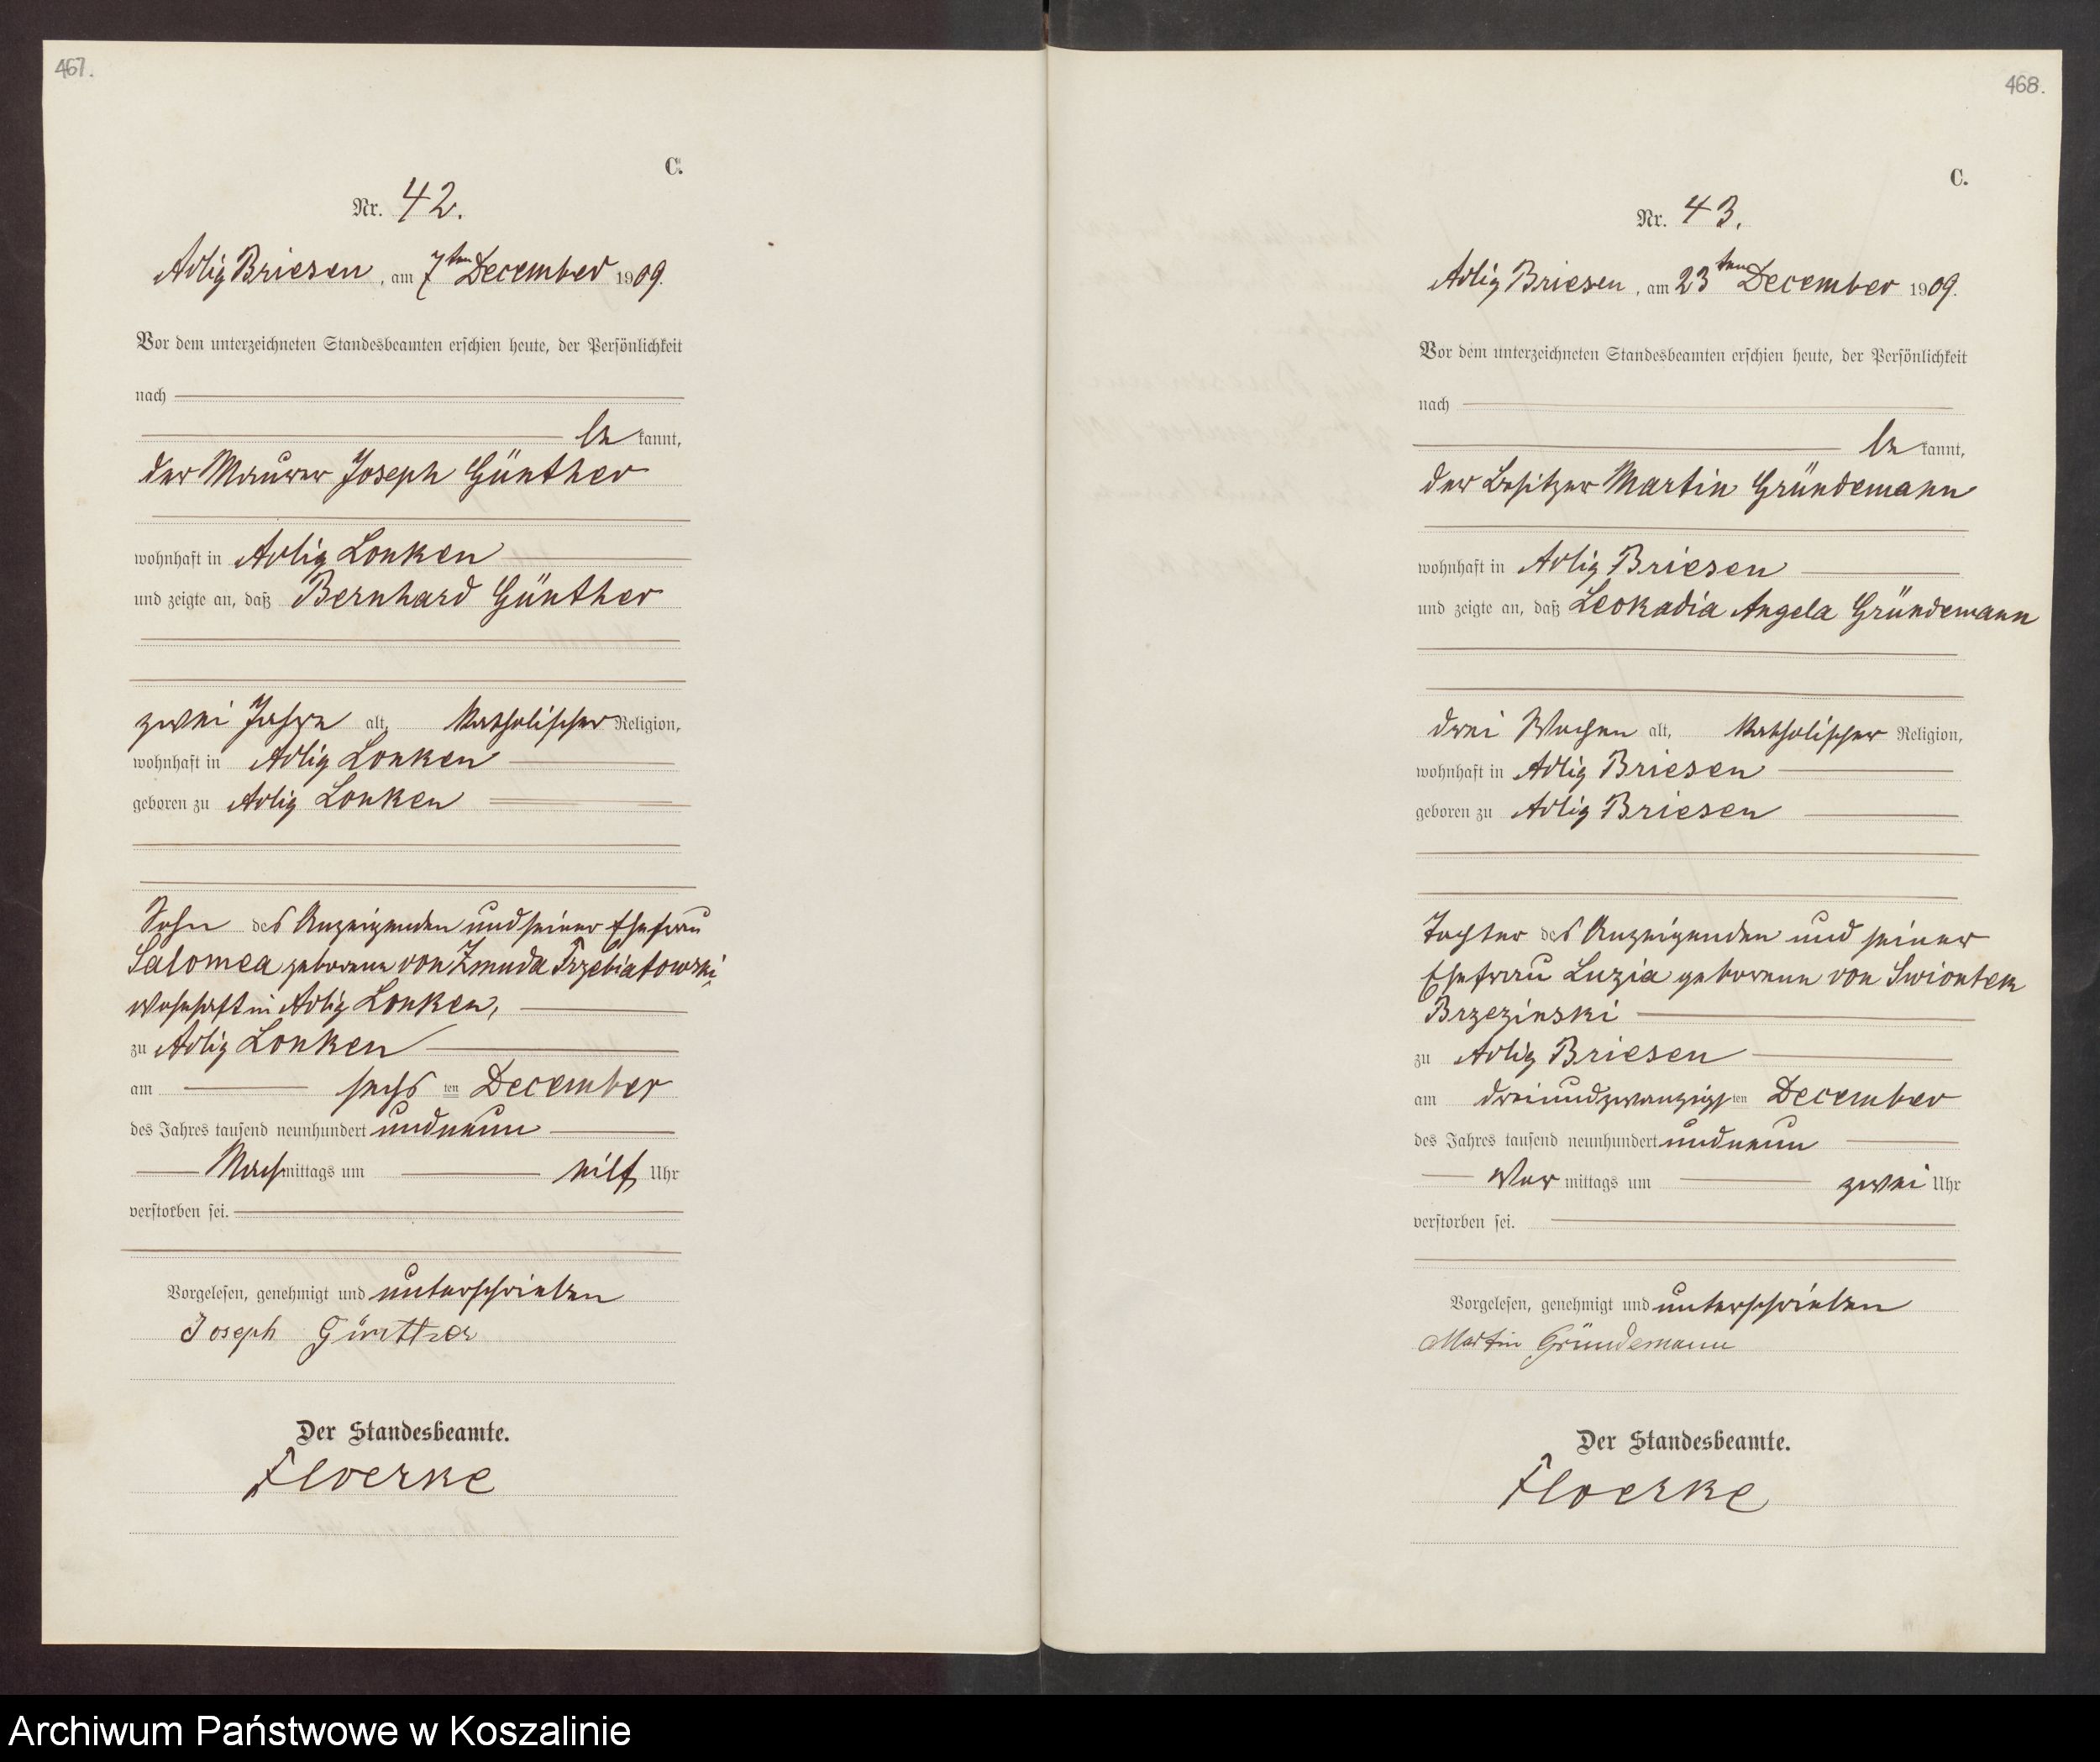 467.
C.
Nr. 42.
Adlig Briesen, am 7ten December 1909.
Vor dem unterzeichneten Standesbeamten erschien heute, der Persönlichkeit
nach
be kannt,
der Maurer Joseph Günther
wohnhaft in Adlig Lonken
und zeigte an, daß Bernhard Günther
zwei Jahre alt, katholischer Religion,
wohnhaft in Adlig Lonken
geboren zu Adlig Lonken
Sohn des Anzeigenden und seiner Ehefrau
Salomea geborene von Zmuda Trzebiatowski,
wohnhaft in Adlig Lonken,
zu Adlig Lonken
am sechsten December
des Jahres tausend neunhundert und neun
Nachmittags um elf Uhr
verstorben sei.
Vorgelesen, genehmigt und unterschrieben
Joseph Günther
Der Standesbeamte.
Floerke
468.
C.
Nr. 43.
Adlig Briesen, am 23ten December 1909.
Vor dem unterzeichneten Standesbeamten erschien heute, der Persönlichkeit
nach
be kannt,
der Besitzer Martin Gründemann
wohnhaft in Adlig Briesen
und zeigte an, daß Leokadia Angela Gründemann
drei Wochen alt, katholischer Religion,
wohnhaft in Adlig Briesen
geboren zu Adlig Briesen
Tochter des Anzeigenden und seiner
Ehefrau Luzia geborenen von Swiontek
Brzezinski
zu Adlig Briesen
am dreiundzwanzigsten December
des Jahres tausend neunhundert und neun
Vor mittags um zwei Uhr
verstorben sei.
Vorgelesen, genehmigt und unterschrieben
Martin Gründemann
Der Standesbeamte.
Floerke
Archiwum Państwowe w Koszalinie